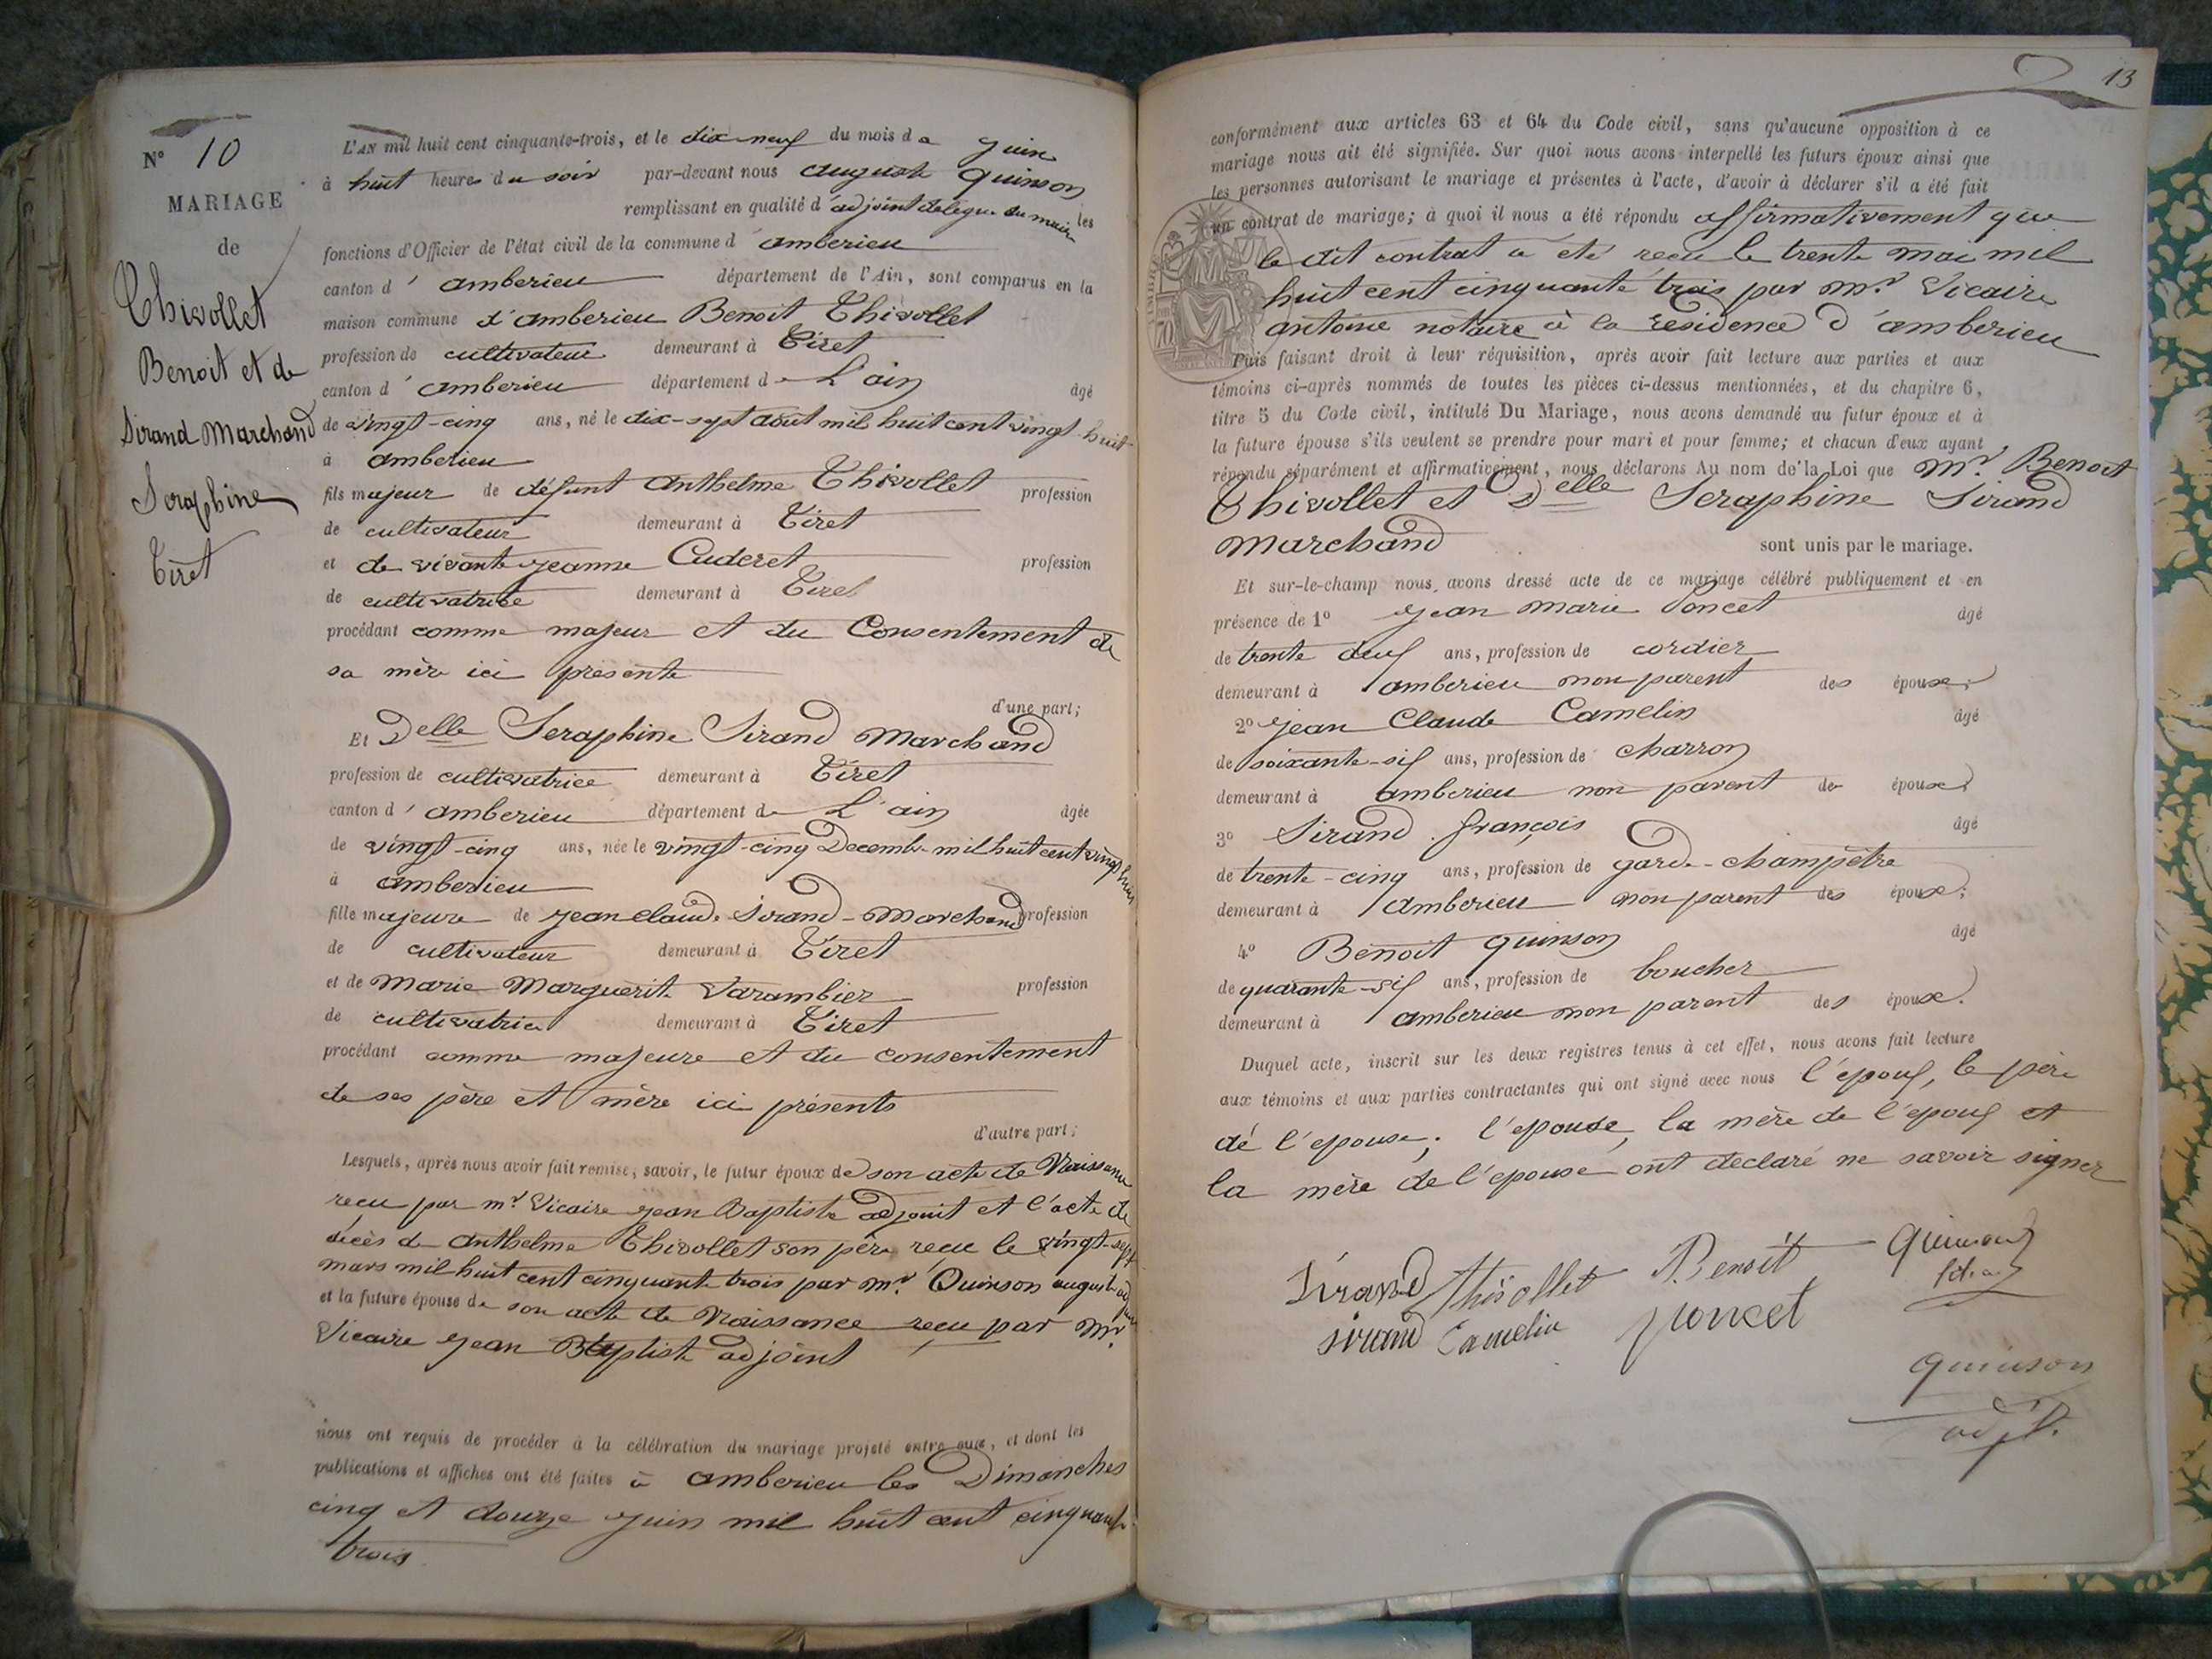 N° 10
MARIAGE
de
Thivollet
Benoit et de
Sirand Marchand
Seraphine
Tiret
L'AN mil huit cent cinquante-trois, et le dix-neuf du mois de juin
à huit heures du soir par-devant nous auguste quinson
remplissant en qualité d'adjoint délégué du maire les
fonctions d'Officier de l'état civil de la commune d'amberieu
canton d'amberieu département de l'Ain, sont comparus en la
maison commune d'amberieu Benoit Thivollet
profession de cultivateur demeurant à Tiret
canton d'amberieu département de L'ain âgé
de vingt-cinq ans, né le dix-sept aout mil huit cent vingt-huit
à amberieu
fils majeur de défunt anthelme Thivollet profession
de cultivateur demeurant à Tiret
et de vivante jeanne Cuderet profession
de cultivatrice demeurant à Tiret
procédant comme majeur et du Consentement de
sa mère ici présente
d'une part;
Et Delle Seraphine Sirand Marchand
profession de cultivatrice demeurant à Tiret
canton d'amberieu département de L'ain âgée
de vingt-cinq ans, née le vingt-cinq Decembre mil huit cent vingt huit
à amberieu
fille majeure de jean claude Sirand-Marchand profession
de cultivateur demeurant à Tiret
et de Marie Marguerite Varambier profession
de cultivatrice demeurant à Tiret
procédant comme majeure et du consentement
de ses père et mère ici présents
d'autre part;
Lesquels, après nous avoir fait remise, savoir, le futur époux de son acte de Naissance
reçu par mr Vicaire jean Baptiste adjoint et l'acte de
décès de anthelme Thivollet son père reçu le vingt-sept
mars mil huit cent cinquante trois par mr. Quinson auguste adjoint
et la future épouse de son acte de Naissance reçu par mr.
Vicaire jean Baptiste adjoint
nous ont requis de procéder à la célébration du mariage projeté entre eux, et dont les
publications et affiches ont été faites à amberieu les Dimanches
cinq et douze juin mil huit cent cinquante
trois
13
conformément aux articles 63 et 64 du Code civil, sans qu'aucune opposition à ce
mariage nous ait été signifiée. Sur quoi nous avons interpellé les futurs époux ainsi que
les personnes autorisant le mariage et présentes à l'acte, d'avoir à déclarer s'il a été fait
un contrat de mariage; à quoi il nous a été répondu affirmativement que
le dit contrat a été reçu le trente mai mil
huit cent cinquante trois par mr. Vicaire
antoine notaire à la residence d'amberieu
Puis faisant droit à leur réquisition, après avoir fait lecture aux parties et aux
témoins ci-après nommés de toutes les pièces ci-dessus mentionnées, et du chapitre 6,
titre 5 du Code civil, intitulé Du Mariage, nous avons demandé au futur époux et à
la future épouse s'ils veulent se prendre pour mari et pour femme; et chacun d'eux ayant
répondu séparément et affirmativement, nous déclarons Au nom de la Loi que Mr. Benoit
Thivollet et Delle Seraphine Sirand
Marchand sont unis par le mariage.
Et sur-le-champ nous avons dressé acte de ce mariage célébré publiquement et en
présence de 1° jean marie Poncet âgé
de trente neuf ans, profession de cordier
demeurant à amberieu non parent des époux;
2° jean Claude Camelin âgé
de soixante-six ans, profession de charron
demeurant à amberieu non parent des époux;
3° Sirand françois âgé
de trente-cinq ans, profession de garde-champêtre
demeurant à amberieu non parent des époux;
4° Benoit quinson âgé
de quarante-six ans, profession de boucher
demeurant à amberieu non parent des époux.
Duquel acte, inscrit sur les deux registres tenus à cet effet, nous avons fait lecture
aux témoins et aux parties contractantes qui ont signé avec nous l'époux, le père
de l'epouse; l'epouse, la mère de l'epoux et
la mère de l'epouse ont déclaré ne savoir signer
Sirand Thivollet Benoit
Sirand Camelin poncet
quinson
adjt.